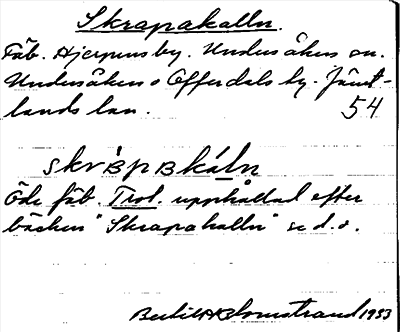 Skrapakalln.
Fäb. Hjerpens by. Undersåkers sn.
Undersåkers o Offerdals hg. Jämt-
lands län. 54
skrʙ̀pʙkáln
Öde fäb. Trol. uppkallad efter
bäcken "Skrapakalln" se d. o.
Bertil A Blomstrand 1933